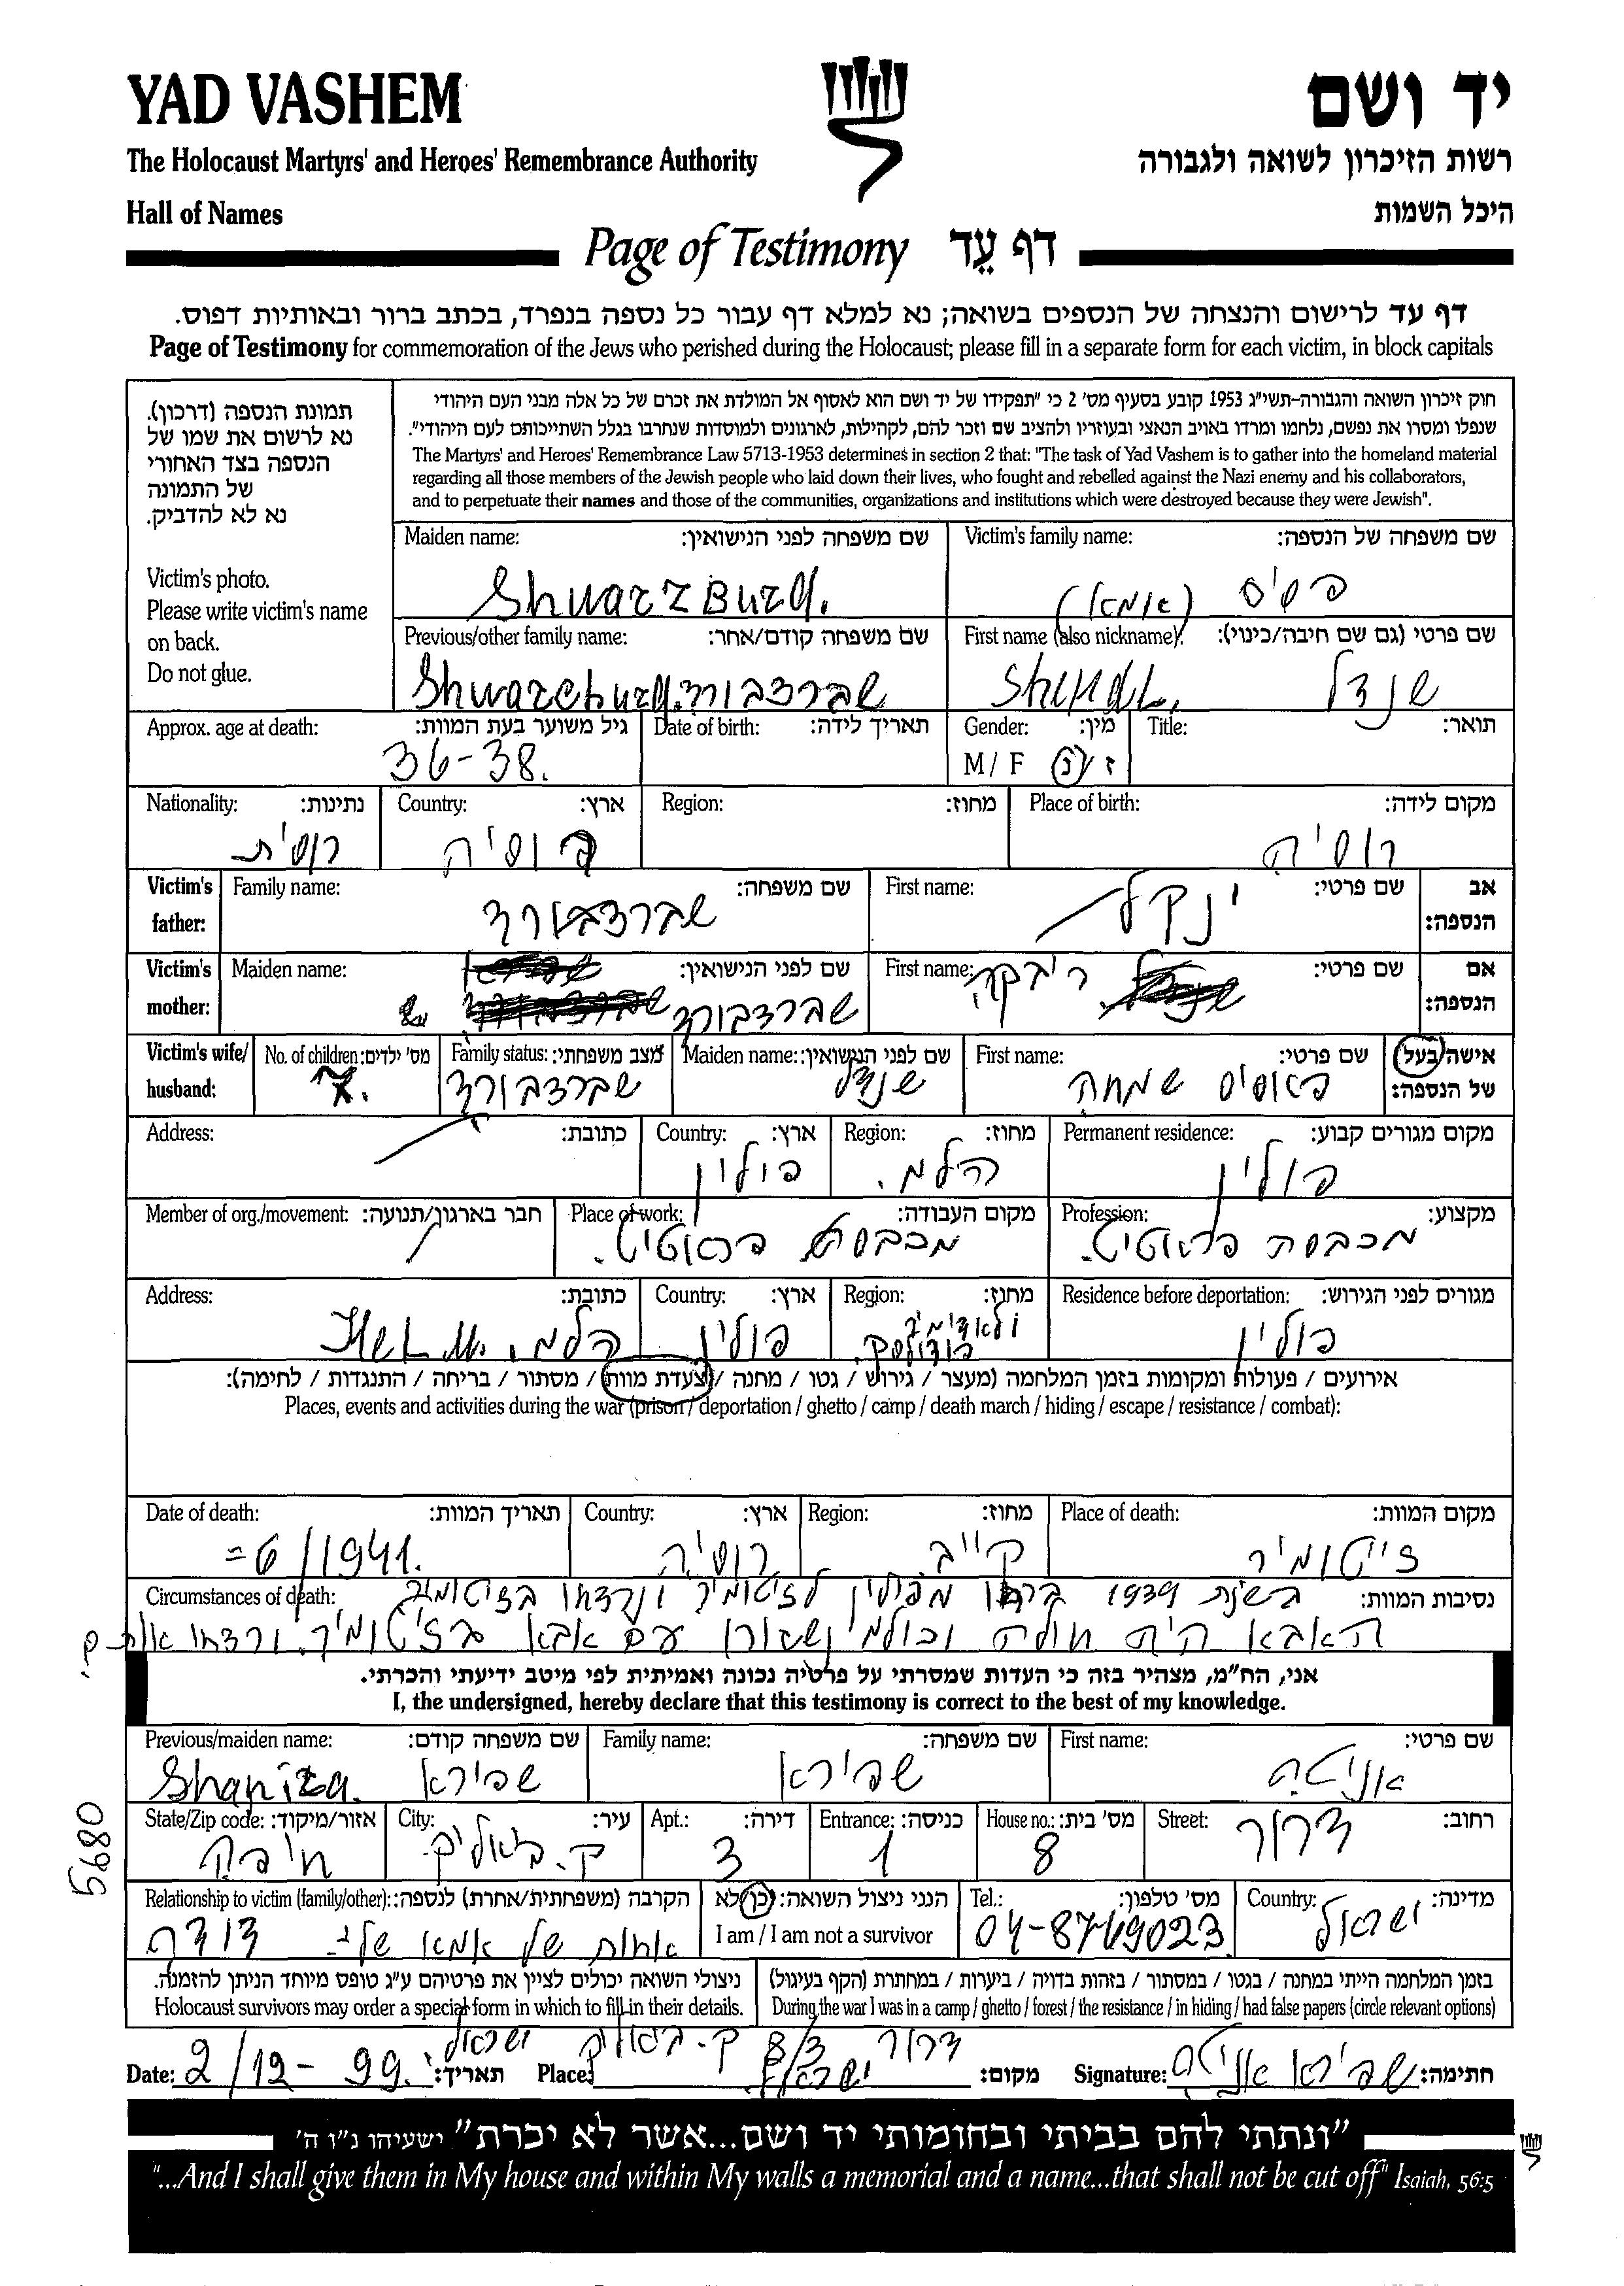 YAD VASHEM יד ושם
The Holocaust Martyrs' and Heroes' Remembrance Authority רשות הזיכרון לשואה ולגבורה
Hall of Names היכל השמות
Page of Testimony דף עֵד
דף עד לרישום והנצחה של הנספים בשואה; נא למלא דף עבור כל נספה בנפרד, בכתב ברור ובאותיות דפוס.
Page of Testimony for commemoration of the Jews who perished during the Holocaust; please fill in a separate form for each victim, in block capitals
תמונת הנספה (דרכון).
נא לרשום את שמו של
הנספה בצד האחורי
של התמונה
נא לא להדביק.
Victim's photo.
Please write victim's name
on back.
Do not glue.
חוק זיכרון השואה והגבורה-תשי"ג 1953 קובע בסעיף מס' 2 כי "תפקידו של יד ושם הוא לאסוף אל המולדת את זכרם של כל אלה מבני העם היהודי
שנפלו ומסרו את נפשם, נלחמו ומרדו באויב הנאצי ובעוזריו ולהציב שם וזכר להם, לקהילות, לארגונים ולמוסדות שנחרבו בגלל השתייכותם לעם היהודי".
The Martyrs' and Heroes' Remembrance Law 5713-1953 determines in section 2 that: "The task of Yad Vashem is to gather into the homeland material
regarding all those members of the Jewish people who laid down their lives, who fought and rebelled against the Nazi enemy and his collaborators,
and to perpetuate their names and those of the communities, organizations and institutions which were destroyed because they were Jewish".
Victim's family name: שם משפחה של הנספה: Maiden name: שם משפחה לפני הנישואין:
(אמא) ShwarzBurg.
First name (also nickname): שם פרטי (גם שם חיבה/כינוי): Previous/other family name: שם משפחה קודם/אחר:
שנדל שברצבורד
Title: תואר: Gender: מין: Date of birth: תאריך לידה: Approx. age at death: גיל משוער בעת המוות:
M / F ז / נ 36-38.
Place of birth: מקום לידה: Region: מחוז: Country: ארץ: Nationality: נתינות:
רוסיה רוסיה רוסית
אב הנספה: First name: שם פרטי: Family name: שם משפחה: Victim's father:
ינקל שברצבורד
אם הנספה: First name: שם פרטי: Maiden name: שם לפני הנישואין: Victim's mother:
ריבקה שברצבורד
אישה/בעל של הנספה: First name: שם פרטי: Maiden name: שם לפני הנישואין: Family status: מצב משפחתי: No. of children: מס' ילדים: Victim's wife/ husband:
שמחה שנדל שברצבורד
Permanent residence: מקום מגורים קבוע: Region: מחוז: Country: ארץ: Address: כתובת:
פולין הלמ. פולין
Profession: מקצוע: Place of work: מקום העבודה: Member of org./movement: חבר בארגון/תנועה:
מכבסה פרוטיט. מכבסה
Residence before deportation: מגורים לפני הגירוש: Region: מחוז: Country: ארץ: Address: כתובת:
פולין פולין הלמ.
אירועים / פעולות ומקומות בזמן המלחמה (מעצר / גירוש / גטו / מחנה / צעדת מוות / מסתור / בריחה / התנגדות / לחימה):
Places, events and activities during the war (prison / deportation / ghetto / camp / death march / hiding / escape / resistance / combat):
Place of death: מקום המוות: Region: מחוז: Country: ארץ: Date of death: תאריך המוות:
זייטומיר קייב רוסיה =6/1941.
Circumstances of death: נסיבות המוות:
בשנת 1939 ברחו מפולין לזיטומיר ונרצחו בזיטומיר
האבא היה חולה וכולמ נשארו עם אבא בזיטומיר. ורצחו אותם.
אני, הח"מ, מצהיר בזה כי העדות שמסרתי על פרטיה נכונה ואמיתית לפי מיטב ידיעתי והכרתי.
I, the undersigned, hereby declare that this testimony is correct to the best of my knowledge.
First name: שם פרטי: Family name: שם משפחה: Previous/maiden name: שם משפחה קודם:
אניטה שפירא שפירא Shapira.
Street: רחוב: House no.: מס' בית: Entrance: כניסה: Apt.: דירה: City: עיר: State/Zip code: אזור/מיקוד:
דרור 8 1 3 ק. ביאליק חיפה
5680
Country: מדינה: Tel.: מס' טלפון: הנני ניצול השואה: כן/לא Relationship to victim (family/other): הקרבה (משפחתית/אחרת) לנספה:
ישראל 04-8749023 I am / I am not a survivor אחות של אמא שלי. דודה
בזמן המלחמה הייתי במחנה / בגטו / במסתור / בזהות בדויה / ביערות / במחתרת (הקף בעיגול)
During the war I was in a camp / ghetto / forest / the resistance / in hiding / had false papers (circle relevant options)
ניצולי השואה יכולים לציין את פרטיהם ע"ג טופס מיוחד הניתן להזמנה.
Holocaust survivors may order a special form in which to fill in their details.
דרור 8/3 ק. ביאליק ישראל.
Date: 2/12-99. תאריך: Place: ישראל מקום: Signature: שפירא אניטה חתימה:
"ונתתי להם בביתי ובחומותי יד ושם...אשר לא יכרת" ישעיהו נ"ו ה'
"...And I shall give them in My house and within My walls a memorial and a name...that shall not be cut off" Isaiah, 56:5